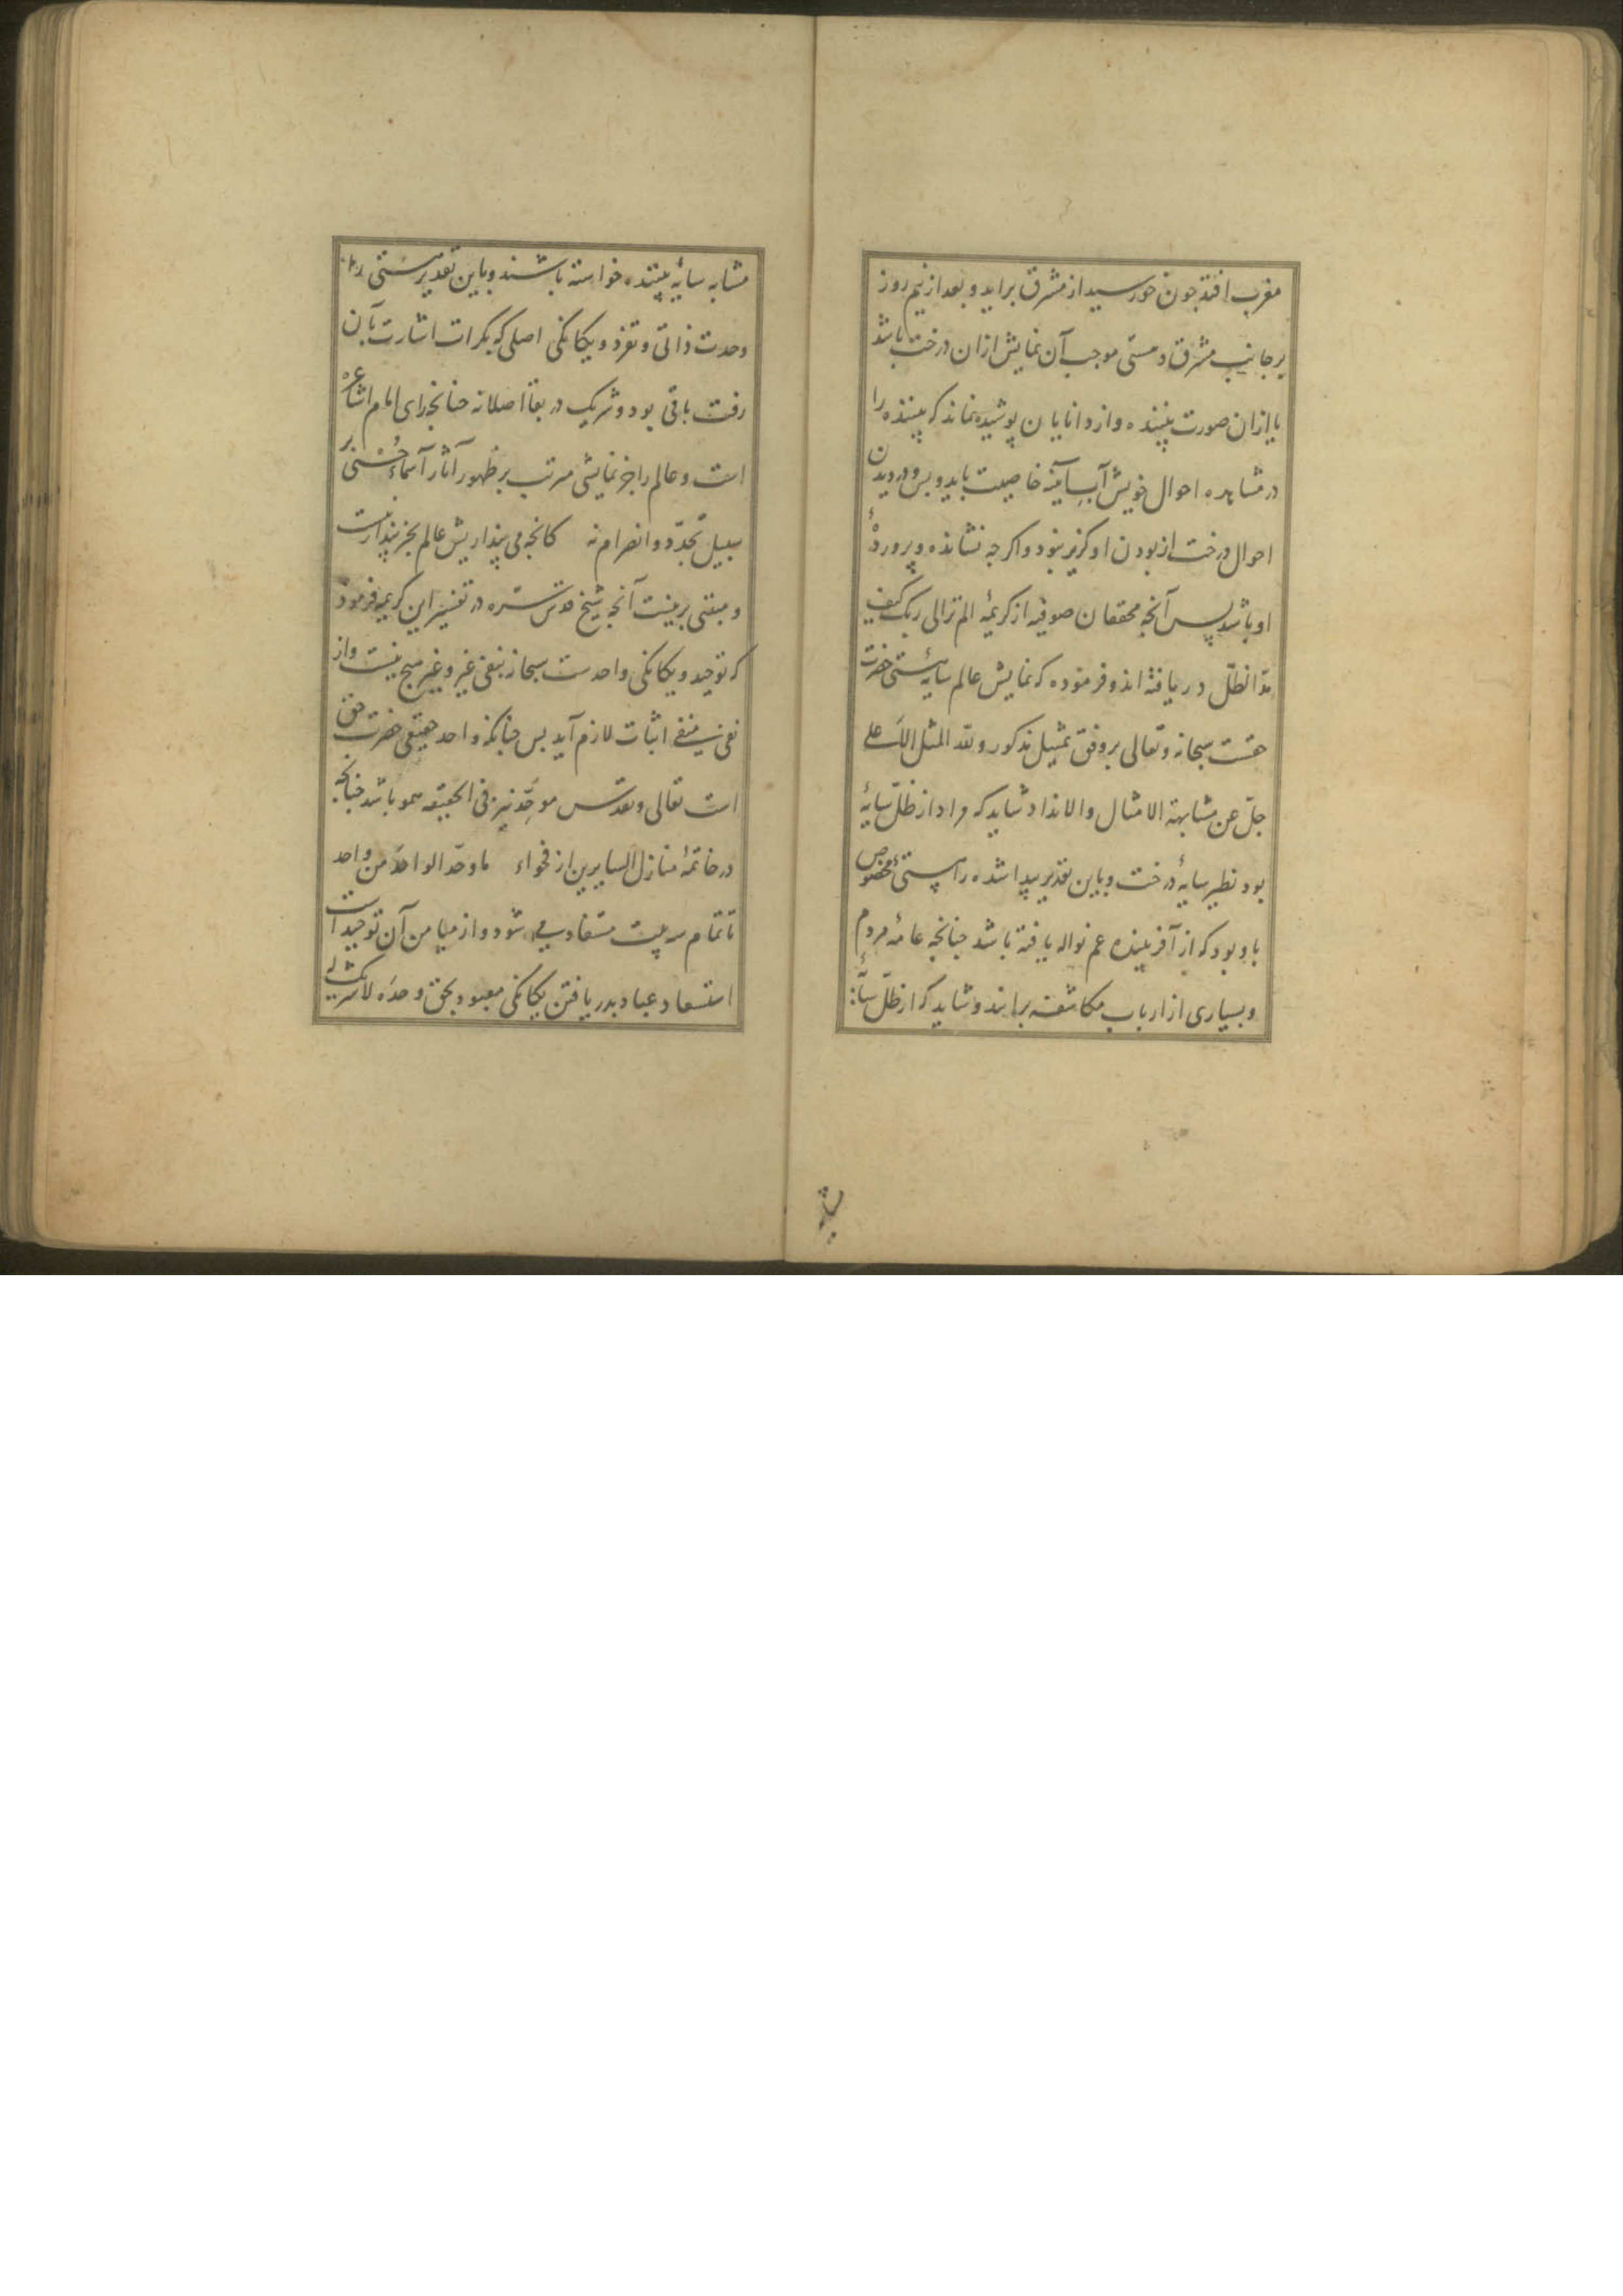 مغرب افتد جون خورسید از مشرق براید و بعد از نیم روز
بر جانب مشرق و مستی موجب آن نمایش ازان درخت باشد
یا ازان صورت بیننده و از دانایان پوشیده نماند که بیننده را
در مشاهده احوال خویش آب آینه خاصیت باید و بس و در دیدن
احوال درخت از بودن او کزیر نبود و اکرجه نشانده و پروردهٔ
او باشد پس آنجه محققان صوفیه از کریمهٔ الم تر الی ربک کیف
مدّ الظلّ دریافته اند و فرموده که نمایش عالم سایهٔ هستی حضرت
حقست سبحانه و تعالی بر وفق تمثیل مذکور و للّه المثل الاعلی
جلّ عن مشابهة الامثال والانداد شاید که مراد از ظلّ سایهٔ
بود نظیر سایهٔ درخت و باین تقدیر پیدا شده را هستیٔ مخصوص
باو بود که از آفریننده عم نواله یافته باشد جنانجه عامهٔ مردم
و بسیاری از ارباب مکاشفه برانند و شاید که از ظلّ سایهٔ
مشابه
مشابه سایهٔ بیننده خواسته باشند و باین تقدیر هستی را
وحدت ذاتی و تفرد و یکانکی اصلی که بکرات اشارت بآن
رفت باقی بود و شریک در بقا اصلا نه جنانجه رای امام اشاعره
است و عالم را جز نمایشی مرتب بر ظهور آثار آسماء حُسْنی بر
سبیل تجدّد و انصرام نه کانجه می پنداریش عالم بجز پندار نیست
و مبتنی برینست آنجه شیخ قدس سّره در تفسیر این کریمه فرموده
که توحید و یکانکی واحدست سبحانه بنفی غیر و غیر هیج نیست و از
نفی منفی اثبات لازم آید بس جنانکه واحد حقیقی حضرت حق
است تعالی و تقدّس موحِّد نیز فی الحقیقه همو باشد جنانجه
در خاتمهٔ منازل السایرین از فحواء ما وحّد الواحدَ من واحد
تا تمام سه بیت مستفاد می شود و از میامن آن توحید است
استسعاد عباد بدریافتن یکانکی معبود بحق وحدَه لا شریک له